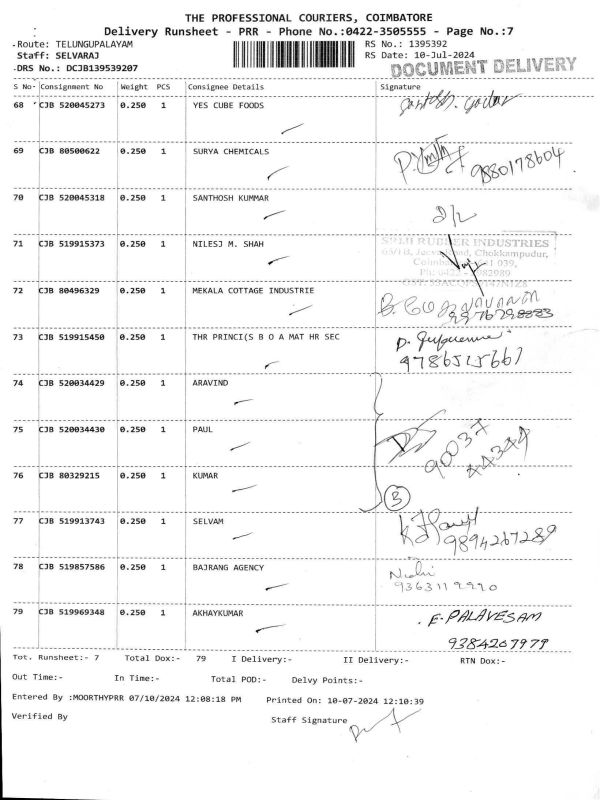 THE PROFESSIONAL COURIERS, COIMBATORE
Delivery Runsheet - PRR - Phone No.:0422-3505555 - Page No.:7
Route: TELUNGUPALAYAM RS No.: 1395392
Staff: SELVARAJ RS Date: 10-Jul-2024
DRS No.: DCJB139539207 DOCUMENT DELIVERY
S No Consignment No Weight PCS Consignee Details Signature
68 CJB 520045273 0.250 1 YES CUBE FOODS
69 CJB 80500622 0.250 1 SURYA CHEMICALS 9880178604
70 CJB 520045318 0.250 1 SANTHOSH KUMMAR
71 CJB 519915373 0.250 1 NILESJ M. SHAH
RUBBER INDUSTRIES
Chokkampudur,
72 CJB 80496329 0.250 1 MEKALA COTTAGE INDUSTRIE
73 CJB 519915450 0.250 1 THR PRINCI(S B O A MAT HR SEC
9786515667
74 CJB 520034429 0.250 1 ARAVIND
75 CJB 520034430 0.250 1 PAUL
90037
44344
76 CJB 80329215 0.250 1 KUMAR
3
77 CJB 519913743 0.250 1 SELVAM
9894267289
78 CJB 519857586 0.250 1 BAJRANG AGENCY
9363119990
79 CJB 519969348 0.250 1 AKHAYKUMAR E. PALAVESAM
9384207979
Tot. Runsheet:- 7 Total Dox:- 79 I Delivery:- II Delivery:- RTN Dox:-
Out Time:- In Time:- Total POD:- Delvy Points:-
Entered By :MOORTHYPRR 07/10/2024 12:08:18 PM Printed On: 10-07-2024 12:10:39
Verified By Staff Signature